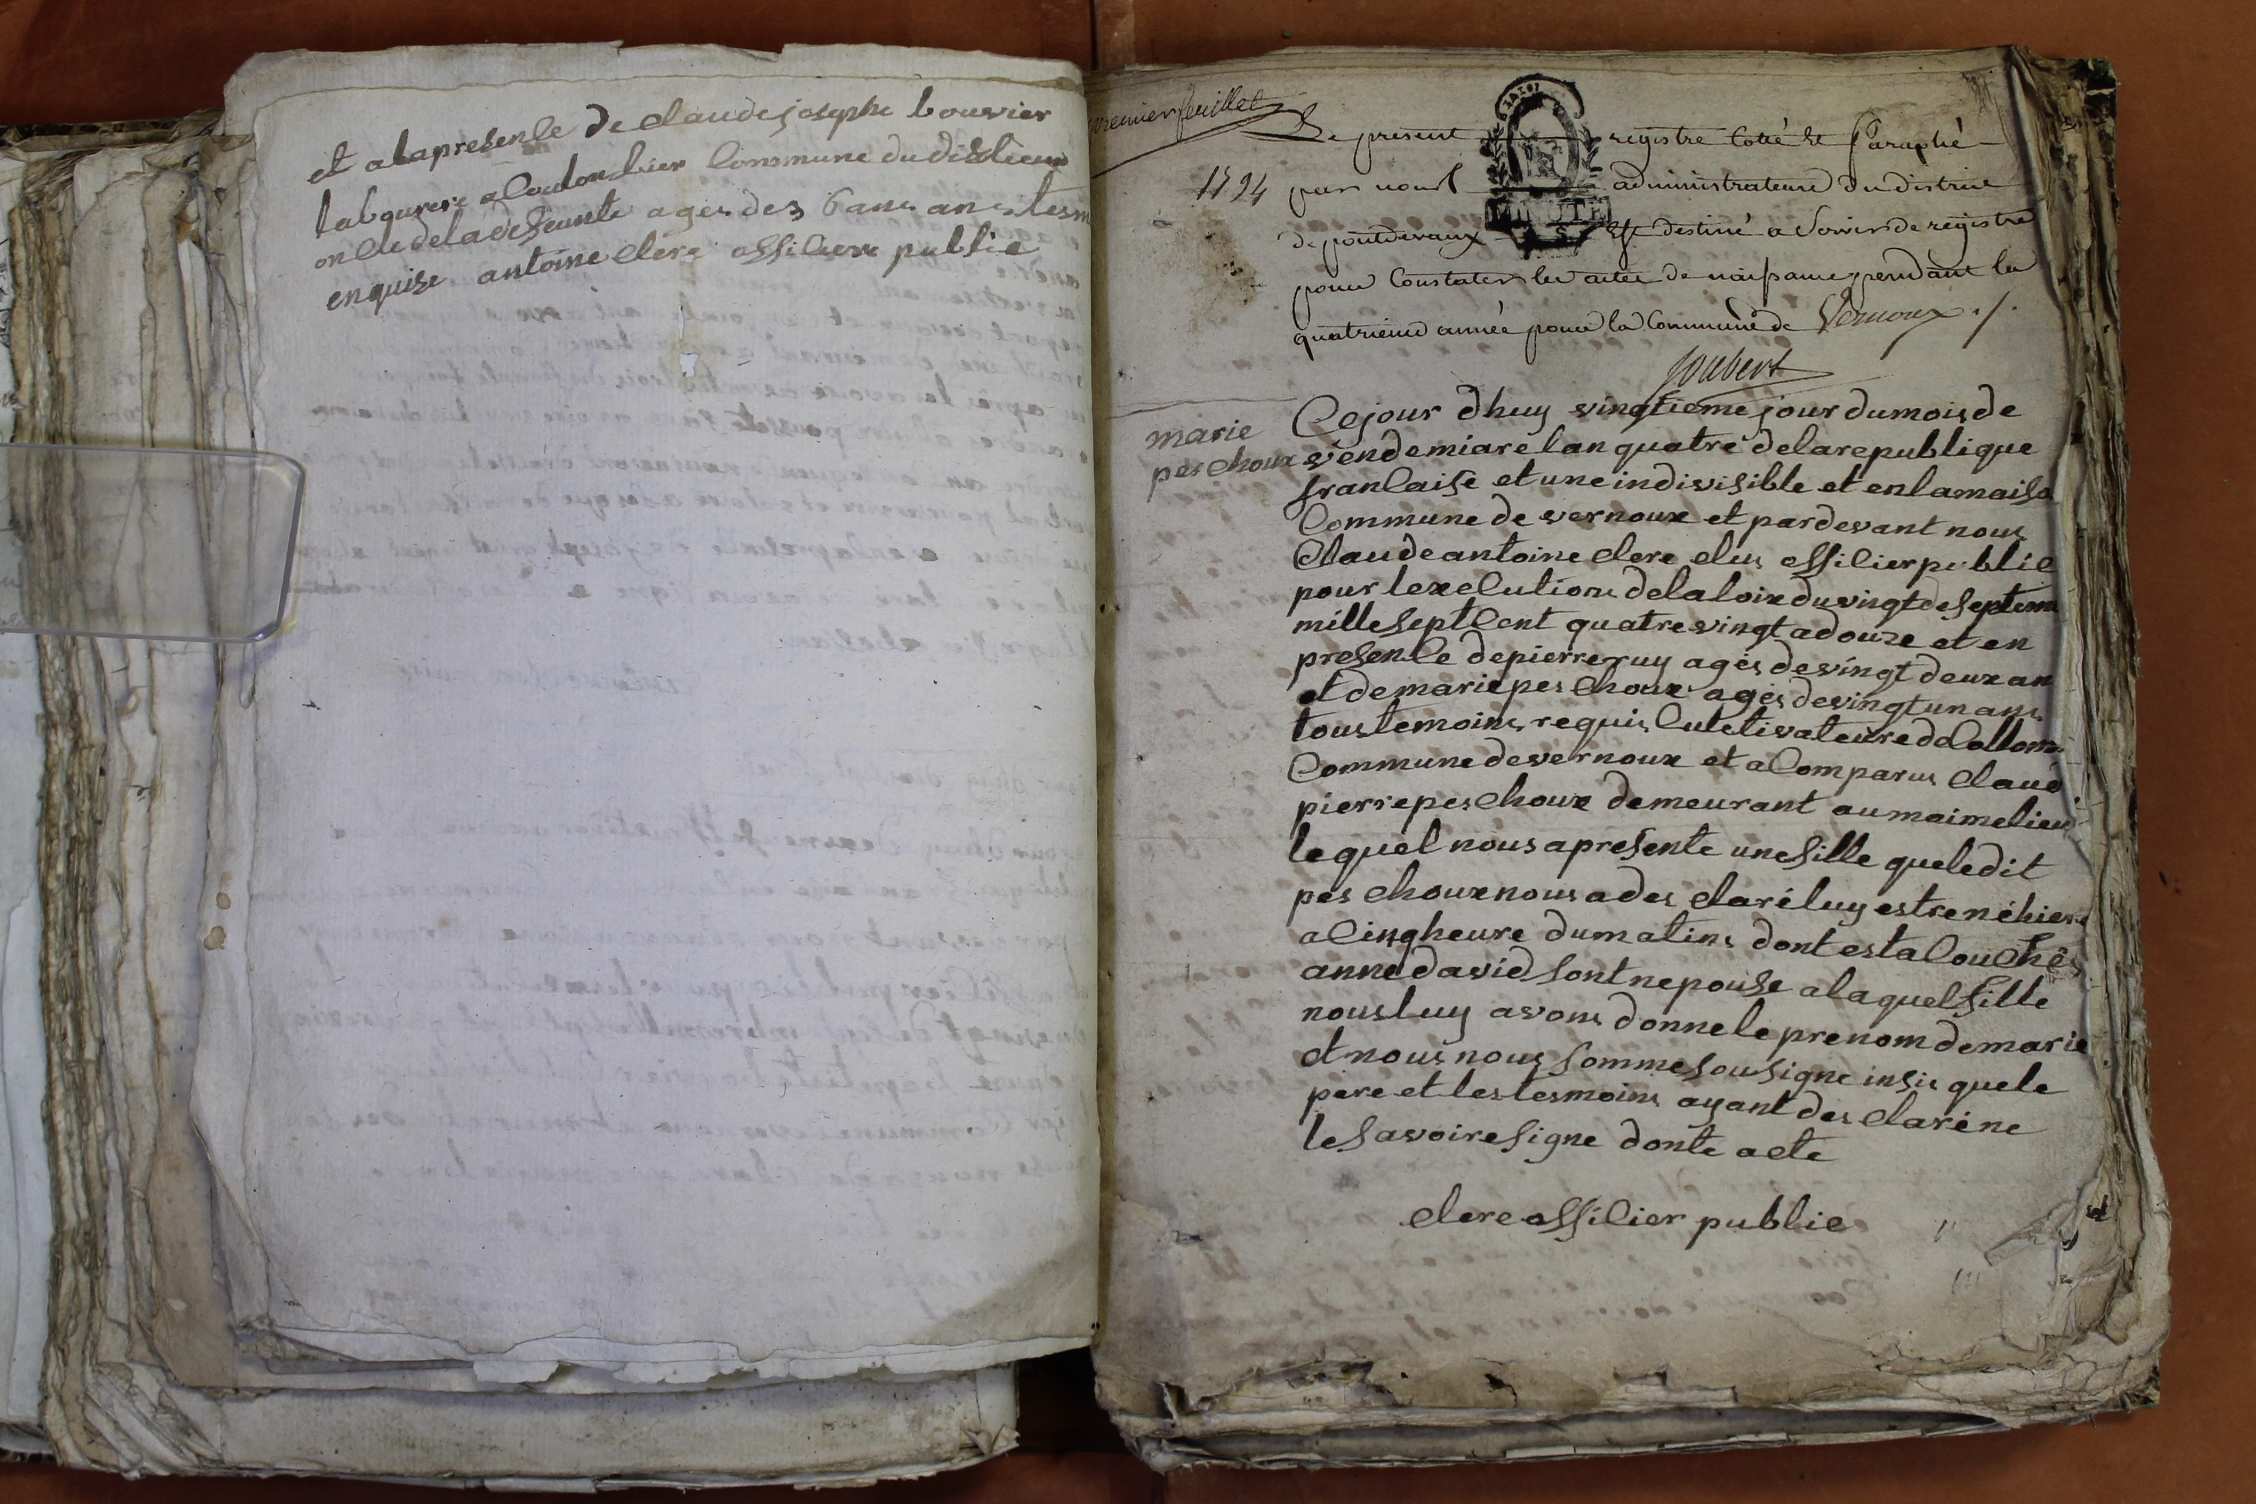 et a la presense de claude josephe bouvier
labourere a Coulonbier Commune dudist lieux
oncle de la defeunte ages des 6 ans an tesm
enquise antoine clerc offisiere public
premier feuillet
Le present registre Cotté et Paraphé
1794 par nous administrateurs du district
de pontdevaux Est destiné a Servir de registre
MINUTE
pour Constater les actes de naissance pendant la
quatrieme année pour la Commune de Vernoux ./.
Joubert
marie
peschoux
Cejour dhuy vingtieme jour du mois de
vendemiare lan quatre de la republique
francaise et une indivisible et en la maiso
Commune de vernoux et par devant nous
Claude antoine clerc elus officier public
pour lexecution de la loix du vingt de septem
mille sept Cent quatre vingt a douze et en
presence de pierre ruy ages de vingt deux an
et de marie peschoux ages de vingt un ans
tous temoins requis Cultivateure de Collom
Commune de vernoux et a Comparus claud
pierre peschoux demeurant au maime lieux
lequel nous a presente une fille que le dit
peschoux nous a des claré luy estre né hier
a Cinq heure du matins dont est a Couchés
anne david sont nepouse a laquel fille
nous luy avons donne le prenom de marie
et nous nous somme sousigne insis que le
pere et les tesmoins ayant des claré ne
le savoire signe donte acte
clerc officier public